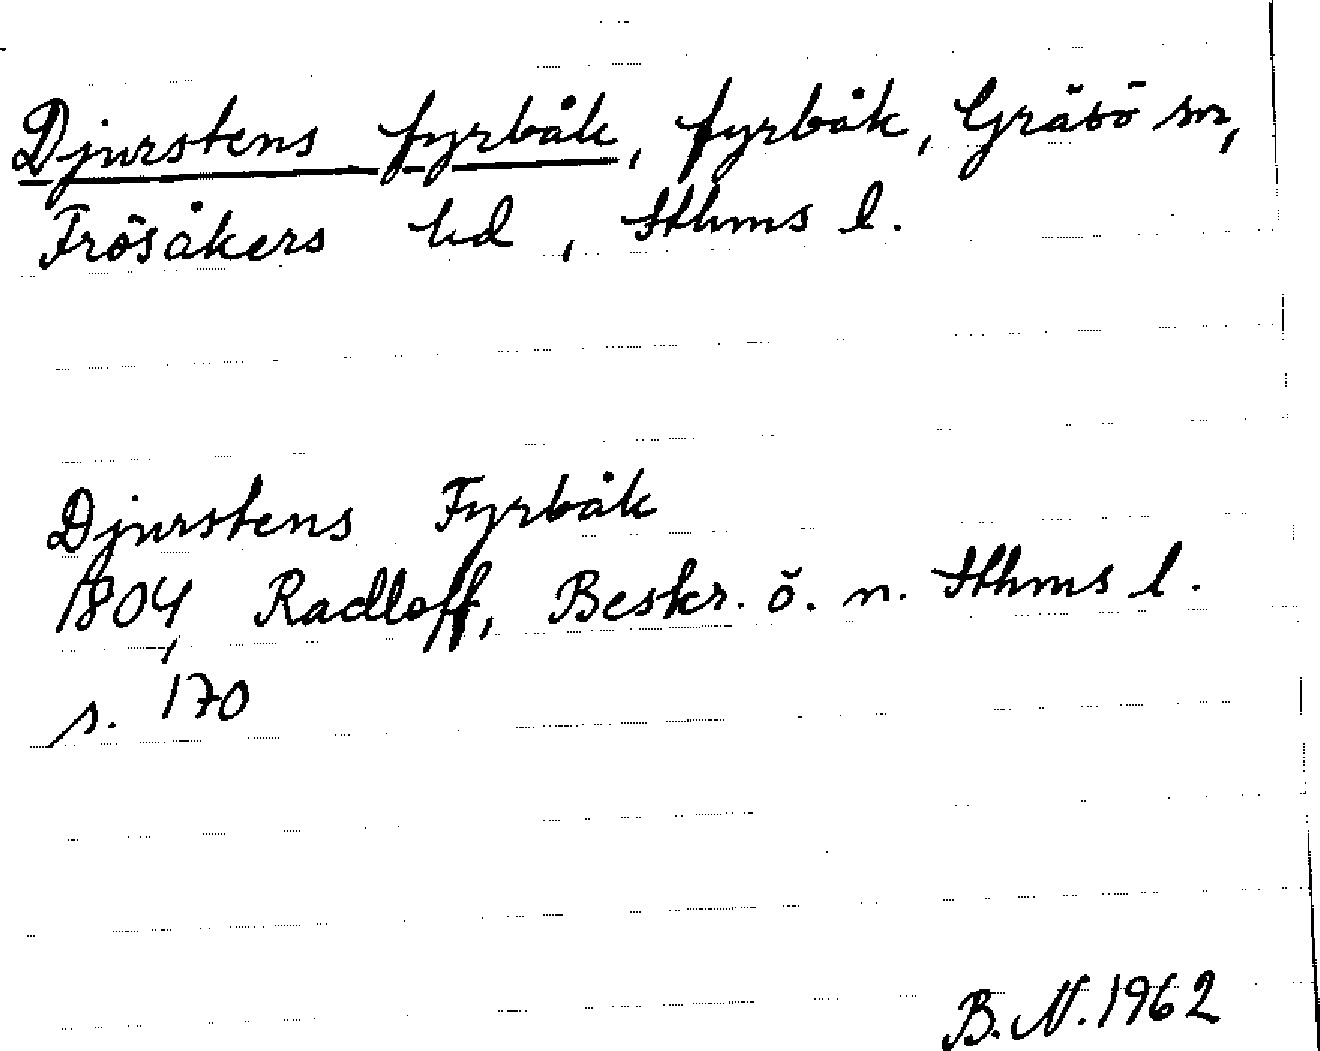 Djurstens fyrbåk, fyrbåk, Gräsö sn,
Frösåkers hd, Sthms l.
Djurstens Fyrbåk
1804, Radloff, Beskr. ö. n. Sthms l.
s. 170
B.N. 1962